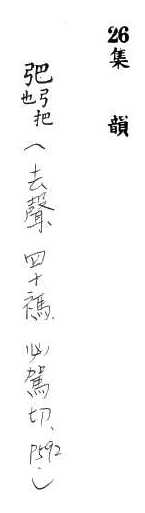 26集 韻
弝弓把也(去聲.四十禡.必駕切.P592.)